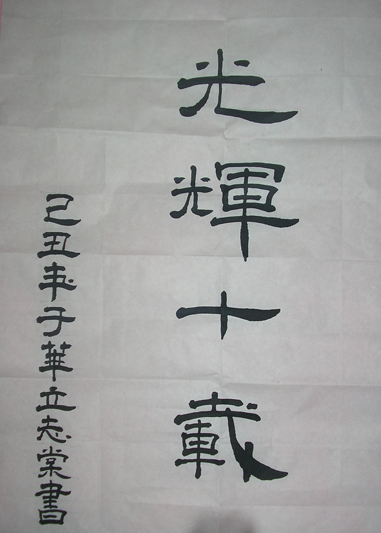 光輝十載
己丑年于華立志棠書